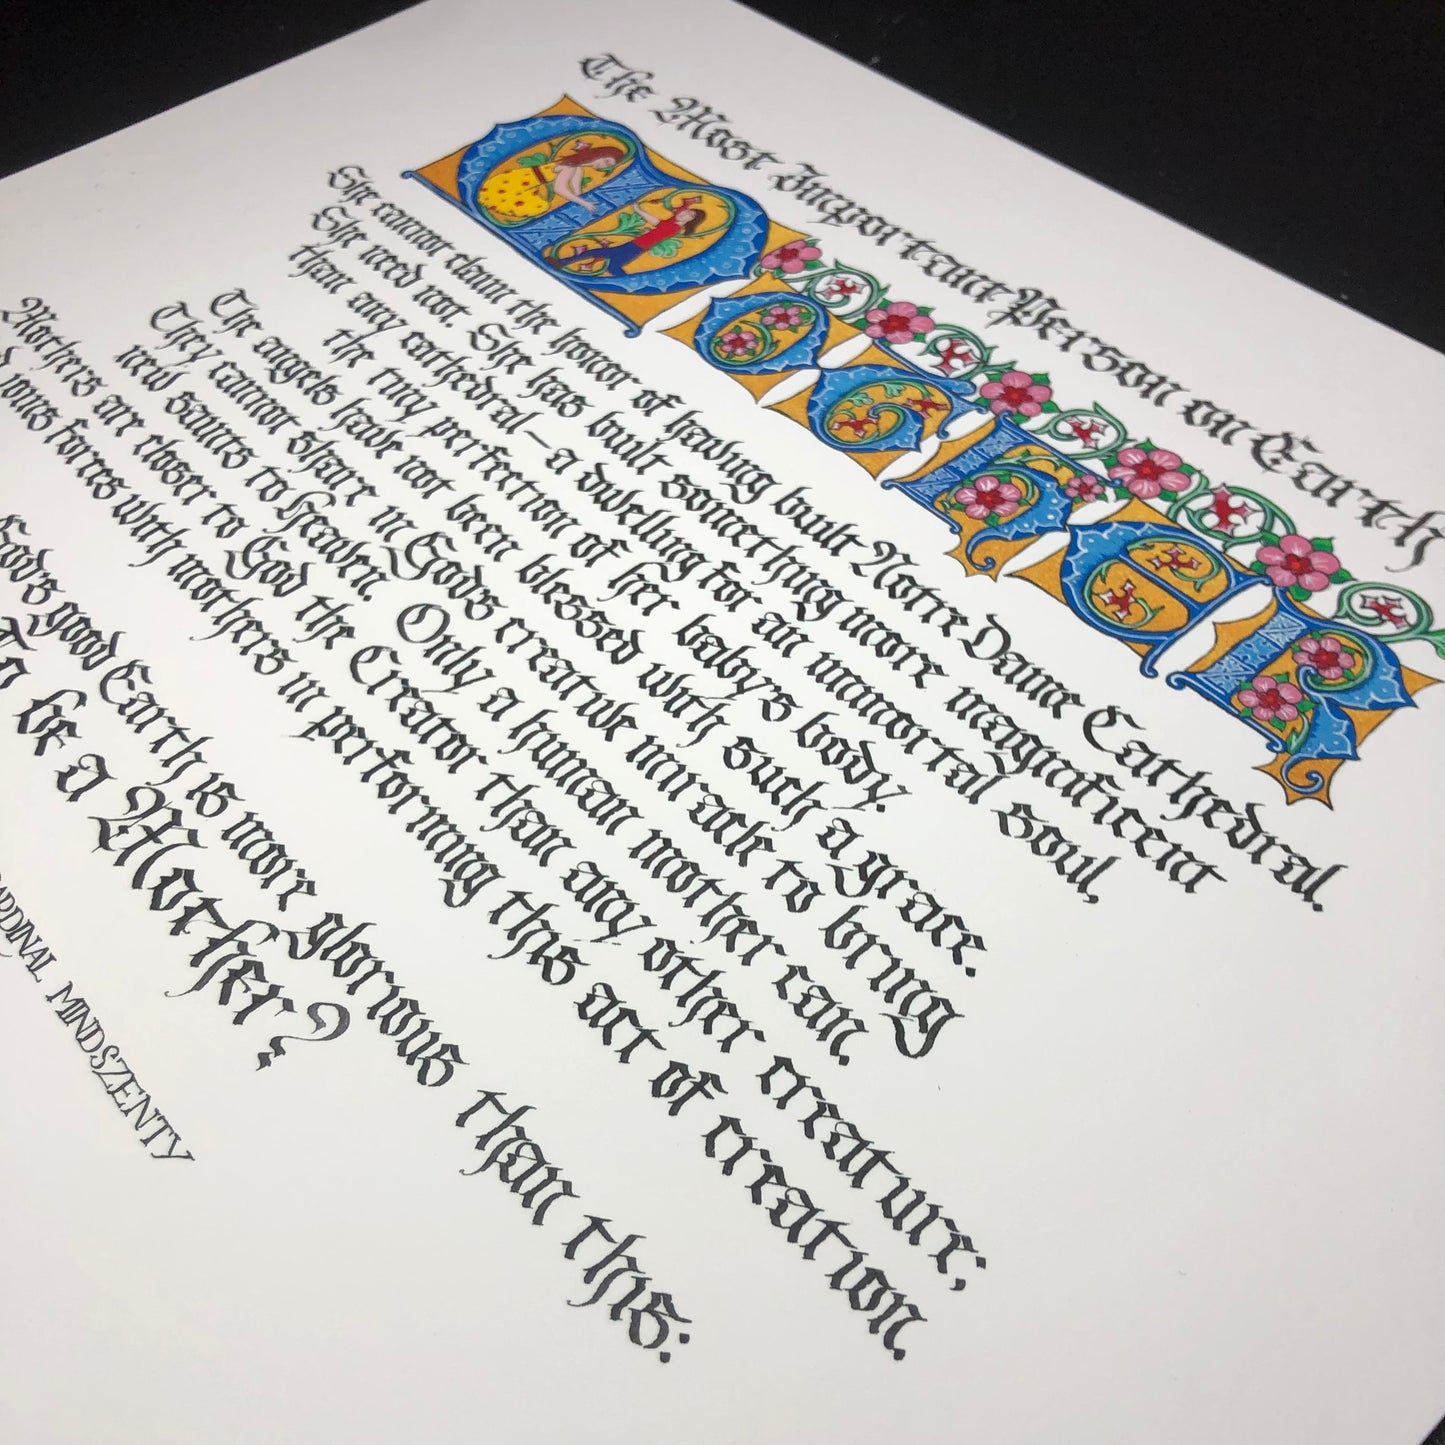 The Most Important Person on Earth
MOTHER
She cannot claim the honor of having built Notre Dame Cathedral.
She need not. She has built something more magnificent
than any cathedral – a dwelling for an immortal soul,
the tiny perfection of her baby's body.
The angels have not been blessed with such a grace.
They cannot share in God's creative miracle to bring
new saints to heaven. Only a human mother can.
Mothers are closer to God the Creator than any other creature;
joins forces with mothers in performing this act of creation.
God's good Earth is more glorious than this:
To be a Mother?
ARDINAL MINDSZENTY